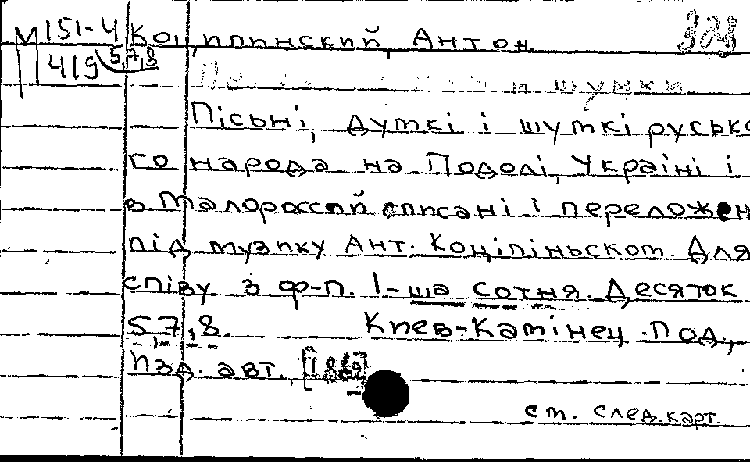 М 151-4 Коціпинский, Антон 323
419 5,7,8
и шумки
Пісьні, думкі і шумкі русько
го народа на Подолі, Україні і
в Малороссій списані і переложен
під музику Ант. Коціпіньском. Для
співу з ф-п. 1-ша сотня. Десяток
5,7,8. Киев-Камінец-Под.,
Изд. авт. [1862]
ст. след. карт.